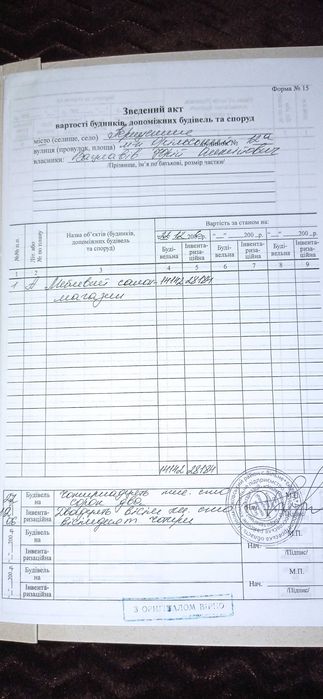 Форма № 15
Зведений акт
вартості будинків, допоміжних будівель та споруд
місто (селище, село)
вулиця (провулок, площа) № 12а
власники:
/Прізвище, ім'я по батькові, розмір частки/
№№ п.п. Літ. або № по плану Назва об'єктів (будинків, допоміжних будівель та споруд) Вартість за станом на:
200 р. "__"____200_р. "__"____200_р.
Буді-вельна Інвента-риза-ційна Буді-вельна Інвента-риза-ційна Буді-вельна Інвента-риза-ційна
1 2 3 4 5 6 7 8 9
1 А Меблевий салон- 14142 28184
магазин
14142 28184
Будівель на Чотирнадцять тис. сто М.П.
сорок два
Інвента-ризаційна Двадцять вісім тис. сто
вісімдесят чотири
Будівель на М.П.
Інвента-ризаційна Нач. /Підпис/
Будівель на М.П.
Інвента-ризаційна Нач. /Підпис/
З ОРИГІНАЛОМ ВІРНО